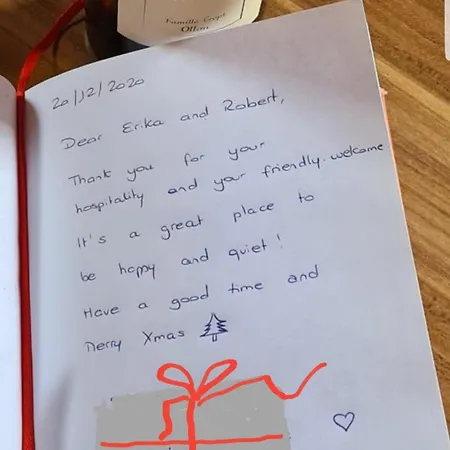 Famille Gops
Ollon
20/12/2020
Dear Erika and Robert,
Thank you for your
hospitality and your friendly welcome
It's a great place to
be happy and quiet!
Have a good time and
Merry Xmas